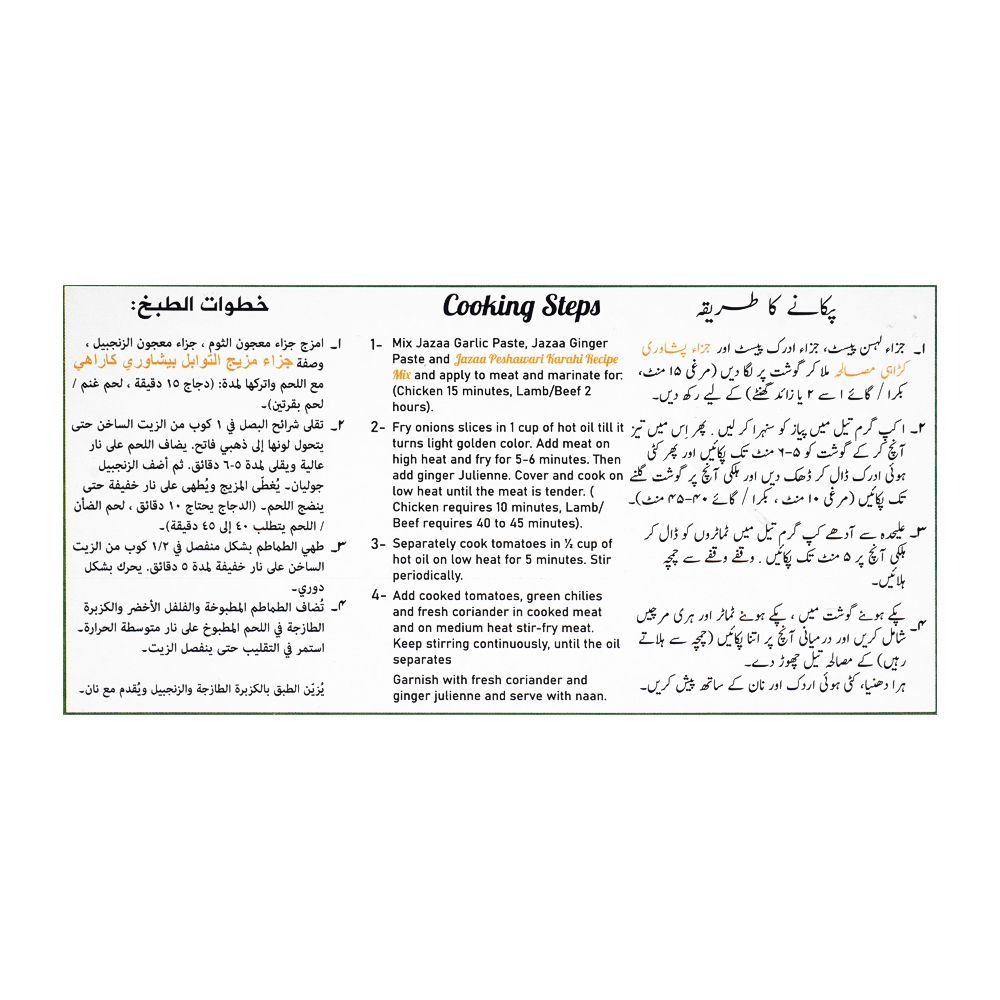 خطوات الطبخ:
١ـ امزج جزاء معجون الثوم ، جزاء معجون الزنجبيل ،
وصفة جزاء مزيج التوابل بيشاوري كاراهي
مع اللحم واتركها لمدة: (دجاج ١٥ دقيقة ، لحم غنم /
لحم بقرتين)۔
٢ـ تقلى شرائح البصل في ١ كوب من الزيت الساخن حتى
يتحول لونها إلى ذهبي فاتح. يضاف اللحم على نار
عالية ويقلى لمدة ٥-٦ دقائق. ثم أضف الزنجبيل
جوليان۔ يُغطّى المزيج ويُطهى على نار خفيفة حتى
ينضج اللحم۔ (الدجاج يحتاج ١٠ دقائق ، لحم الضأن
/ اللحم يتطلب ٤٠ إلى ٤٥ دقيقة)۔
٣ـ طهي الطماطم بشكل منفصل في ١/٢ كوب من الزيت
الساخن على نار خفيفة لمدة ٥ دقائق. يحرك بشكل
دوري۔
۴ـ تُضاف الطماطم المطبوخة والفلفل الأخضر والكزبرة
الطازجة في اللحم المطبوخ على نار متوسطة الحرارة.
استمر في التقليب حتى ينفصل الزيت۔
يُزيّن الطبق بالكزبرة الطازجة والزنجبيل ويُقدم مع نان۔
Cooking Steps
1- Mix Jazaa Garlic Paste, Jazaa Ginger
Paste and Jazaa Peshawari Karahi Recipe
Mix and apply to meat and marinate for:
(Chicken 15 minutes, Lamb/Beef 2
hours).
2- Fry onions slices in 1 cup of hot oil till it
turns light golden color. Add meat on
high heat and fry for 5-6 minutes. Then
add ginger Julienne. Cover and cook on
low heat until the meat is tender. (
Chicken requires 10 minutes, Lamb/
Beef requires 40 to 45 minutes).
3- Separately cook tomatoes in ½ cup of
hot oil on low heat for 5 minutes. Stir
periodically.
4- Add cooked tomatoes, green chilies
and fresh coriander in cooked meat
and on medium heat stir-fry meat.
Keep stirring continuously, until the oil
separates
Garnish with fresh coriander and
ginger julienne and serve with naan.
پکانے کا طریقہ
۱ـ جزاء لہسن پیسٹ، جزاء ادرک پیسٹ اور جزاء پشاوری
کڑاہی مصالحہ ملا کر گوشت پر لگا دیں (مرغی ۱۵ منٹ،
بکرا / گائے ۱ سے ۲ یا زائد گھنٹے) کے لیے رکھ دیں۔
۲ـ ا کپ گرم تیل میں پیاز کو سنہرا کر لیں . پھر اِس میں تیز
آنچ کر کے گوشت کو ۵-۶ منٹ تک پکائیں اور پھر کٹی
ہوئی ادرک ڈال کر ڈھک دیں اور ہلکی آنچ پر گوشت گلنے
تک پکائیں (مرغی ۱۰ منٹ ، بکرا / گائے ۴۰-۴۵ منٹ)۔
۳ـ علیحدہ سے آدھے کپ گرم تیل میں ٹماٹروں کو ڈال کر
ہلکی آنچ پر ۵ منٹ تک پکائیں . وقفے وقفے سے چمچہ
ہلائیں۔
۴ـ پکے ہوئے گوشت میں ، پکے ہوئے ٹماٹر اور ہری مرچیں
شامل کریں اور درمیانی آنچ پر اتنا پکائیں (چمچہ سے ہلاتے
رہیں) کے مصالحہ تیل چھوڑ دے۔
ہرا دھنیا، کٹی ہوئی ادرک اور نان کے ساتھ پیش کریں۔